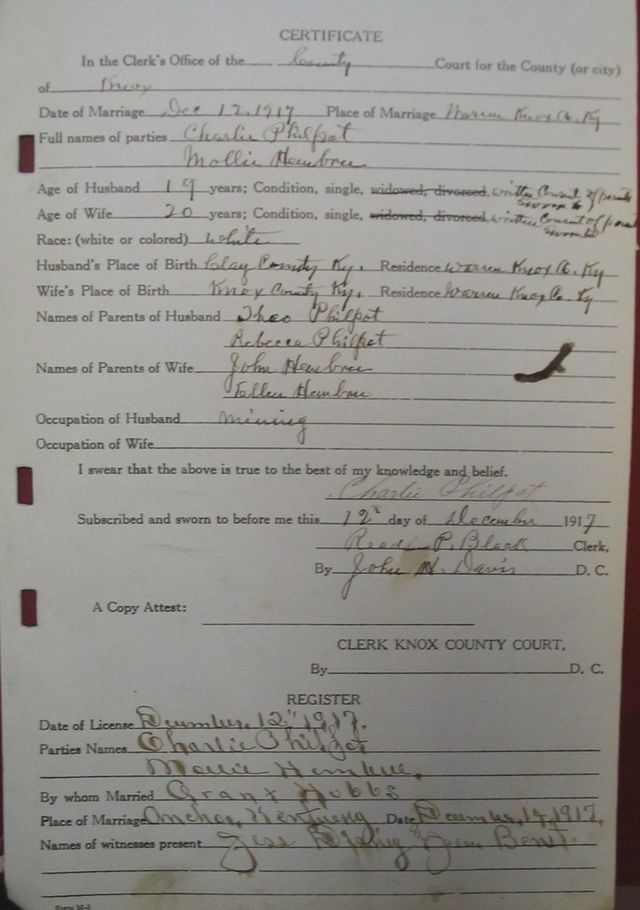 CERTIFICATE
In the Clerk's Office of the County Court for the County (or city)
of Knox
Date of Marriage Dec 12, 1917 Place of Marriage Warren Knox Co. Ky
Full names of parties Charlie Philpot
Mollie Hembree
Age of Husband 19 years; Condition, single, widowed, divorced. written Consent of parents
sworn to
Age of Wife 20 years; Condition, single, widowed, divorced. written Consent of parents
sworn to
Race: (white or colored) white
Husband's Place of Birth Clay County Ky. Residence Warren Knox Co. Ky
Wife's Place of Birth Knox County Ky. Residence Warren Knox Co. Ky
Names of Parents of Husband Theo Philpot
Rebecca Philpot
Names of Parents of Wife John Hembree
Hembree
Occupation of Husband mining
Occupation of Wife
I swear that the above is true to the best of my knowledge and belief.
Charlie Philpot
Subscribed and sworn to before me this 12" day of December 1917
Read P. Black Clerk,
By John H. Davis D. C.
A Copy Attest:
CLERK KNOX COUNTY COURT,
By D. C.
REGISTER
Date of License December, 12," 1917.
Parties Names Charlie Philpot
By whom Married Grant Hobbs
Place of Marriage Kentucky Date December, 14, 1917,
Names of witnesses present Jess